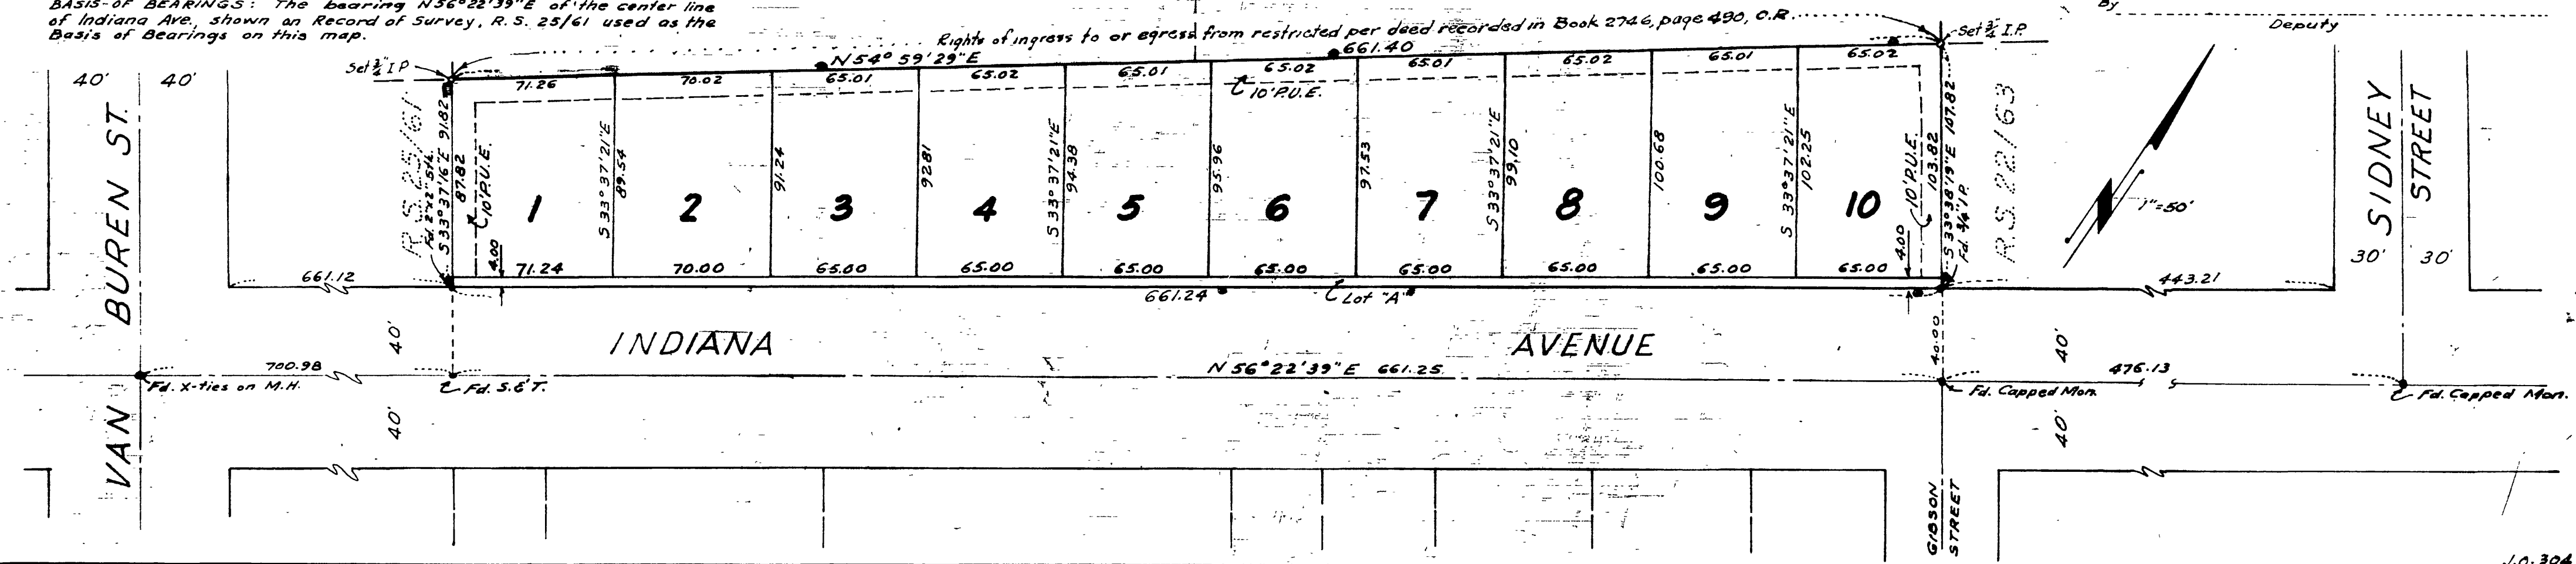 BASIS-OF BEARINGS: The bearing N56°22'39"E of the center line
of Indiana Ave., shown on Record of Survey, R.S. 25/61 used as the
Basis of Bearings on this map.
By
Deputy
Rights of ingress to or egress from restricted per deed recorded in Book 2746, page 490, O.R.
Set ¾" I.P.
Set ¾" I.P.
N54°59'29"E
661.40
40'
40'
71.26
70.02
65.01
65.02
65.01
65.02
65.01
65.02
65.01
65.02
10' P.U.E.
VAN BUREN ST.
R.S. 25/61
Fd. 2"x2" Stk.
S33°37'16"E 91.82
87.82
10' P.U.E.
S33°37'21"E
89.54
91.24
92.81
S33°37'21"E
94.38
95.96
97.53
S33°37'21"E
99.10
100.68
S33°37'21"E
102.25
10' P.U.E.
103.82
S33°38'19"E 107.82
Fd. ¾" I.P.
R.S. 22/63
1"=50'
SIDNEY
STREET
30'
30'
1
2
3
4
5
6
7
8
9
10
4.00
4.00
661.12
71.24
70.00
65.00
65.00
65.00
65.00
65.00
65.00
65.00
65.00
443.21
661.24
Lot "A"
40'
INDIANA
AVENUE
40.00
40'
700.98
N56°22'39"E 661.25
476.13
Fd. X-ties on M.H.
Fd. S.&T.
Fd. Capped Mon.
Fd. Capped Mon.
40'
40'
GIBSON
STREET
J.O. 304